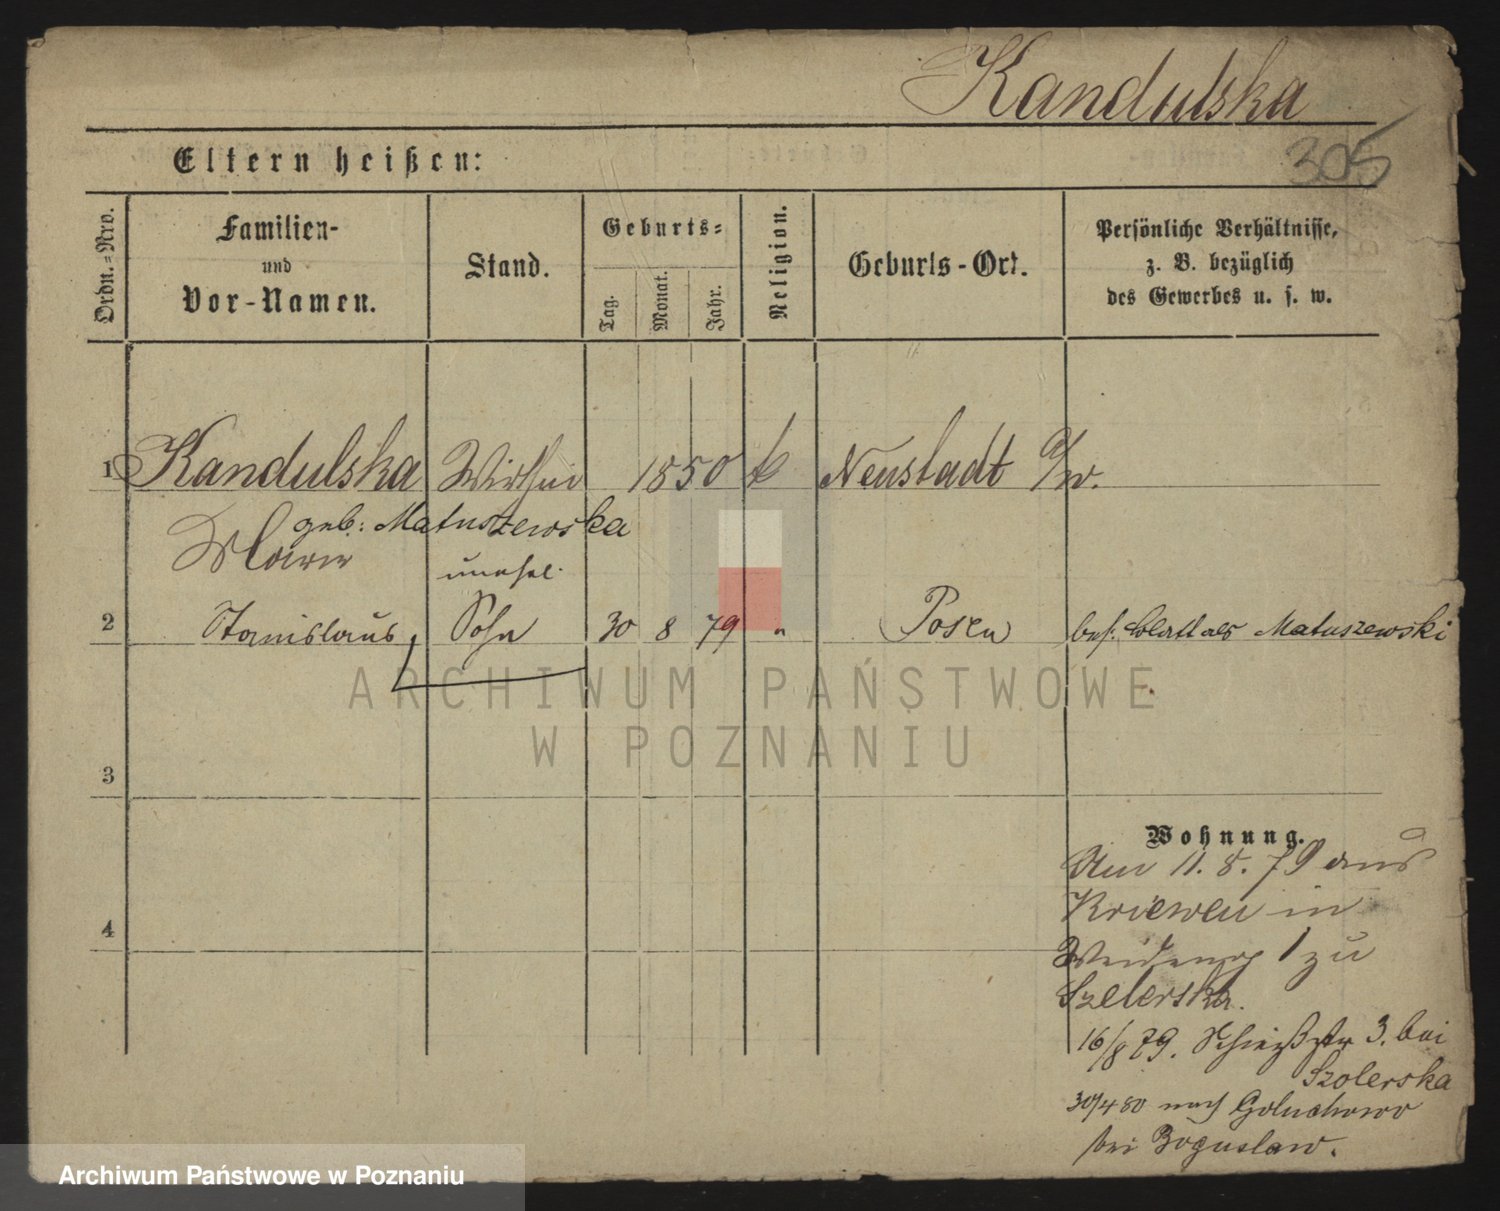 Kandulska
305
Eltern heißen:
Ordn.=Nro.
Familien-
und
Vor-Namen.
Stand.
Geburts=
Tag.
Monat.
Jahr.
Religion.
Geburts-Ort.
Persönliche Verhältnisse,
z. B. bezüglich
des Gewerbes u. s. w.
1 Kandulska Wirthin 1850 k Neustadt a/w.
geb: Matuszewska
Marie
unehel.
2 Stanislaus, Sohn 30 8 79 " Posen bes. Blatt als Matuszewski
3
4
Wohnung.
Am 11. 8. 79 aus
Kriewen in
1 zu
Szelerska.
16/8 79. Schießstr 3. bei
Szolerska
30/4 80 nach Goluchowo
bei Boguslaw.
ARCHIWUM PAŃSTWOWE
W POZNANIU
Archiwum Państwowe w Poznaniu